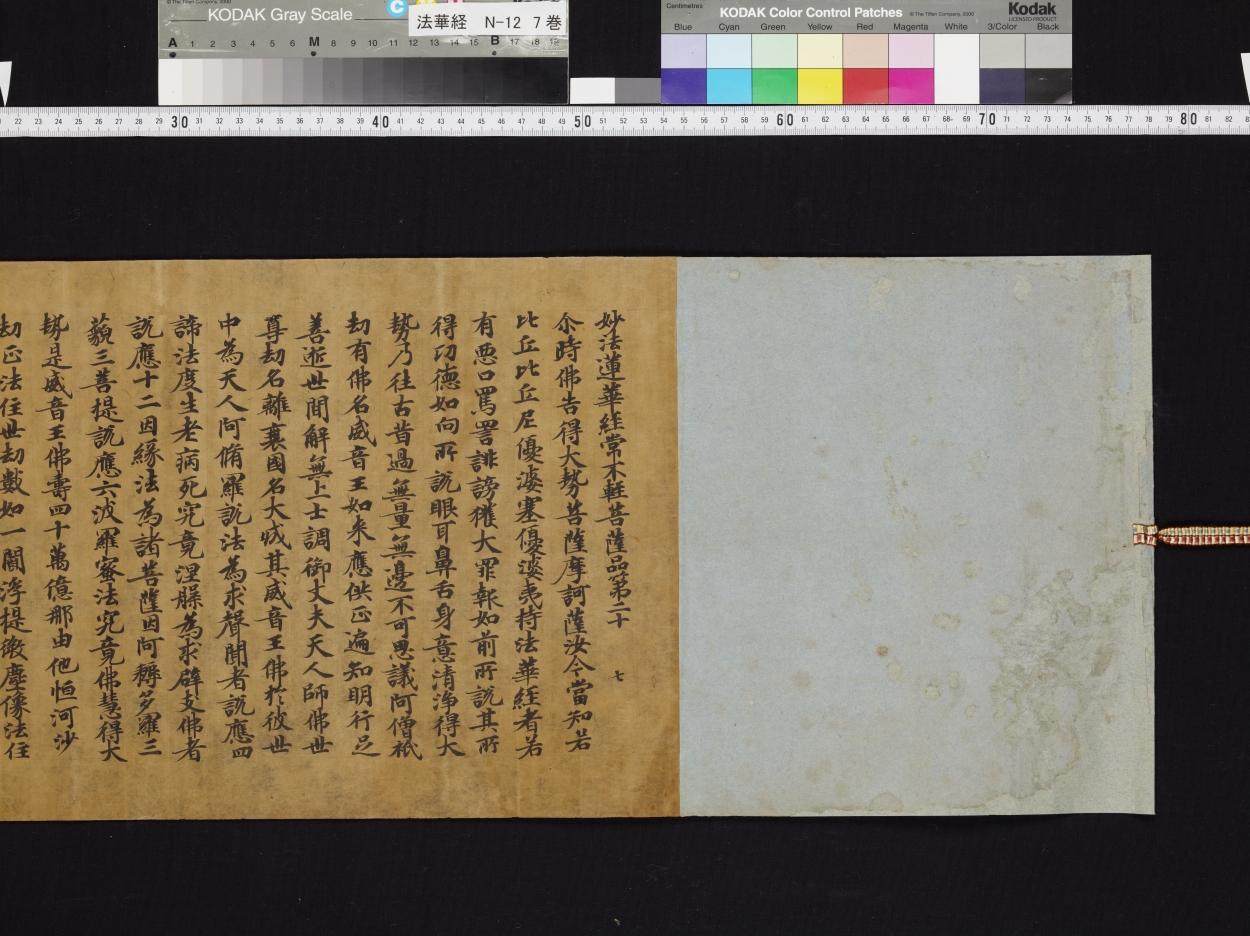 KODAK Gray Scale
法華経 N-12 7巻
A 1 2 3 4 5 6 M 8 9 10 11 12 13 14 15 B 17 18 19
Centimetres
KODAK Color Control Patches
© The Tiffen Company, 2000
Kodak
LICENSED PRODUCT
Blue Cyan Green Yellow Red Magenta White 3/Color Black
22 23 24 25 26 27 28 29 30 31 32 33 34 35 36 37 38 39 40 41 42 43 44 45 46 47 48 49 50 51 52 53 54 55 56 57 58 59 60 61 62 63 64 65 66 67 68 69 70 71 72 73 74 75 76 77 78 79 80 81 82
妙法蓮華経常不軽菩薩品第二十 七
尒時佛告得大勢菩薩摩訶薩汝今當知若
比丘比丘尼優婆塞優婆夷持法華経者若
有悪口罵詈誹謗獲大罪報如前所說其所
得功德如向所說眼耳鼻舌身意清淨得大
勢乃往古昔過無量無邊不可思議阿僧祇
劫有佛名威音王如来應供正遍知明行足
善逝世間解無上士調御丈夫天人師佛世
尊劫名離衰國名大成其威音王佛於彼世
中為天人阿脩羅說法為求聲聞者說應四
諦法度生老病死究竟涅槃為求辟支佛者
說應十二因緣法為諸菩薩因阿耨多羅三
藐三菩提說應六波羅蜜法究竟佛慧得大
勢是威音王佛壽四十萬億那由他恒河沙
劫正法住世劫數如一閻浮提微塵像法住